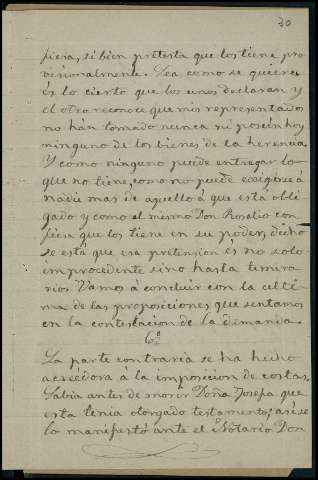 30
fiesa, si bien pretesta que los tiene pro
visionalmente. Sea como se quiera
és lo cierto que los unos declaran y
el otro reconoce que mis representados
no han tomado nunca ni poseén hoy
ninguno de los bienes de la herencia
Y como ninguno puede entregar lo
que no tiene, como no puede exigirse á
nadie mas de aquello á que está obli
gado y como el mismo Don Rosalio con
fiesa que los tiene en su poder, dicho
se está que esa pretension és no solo
improcedente sino hasta temera
ria. Vamos á concluir con la últi
ma de las proposiciones que sentamos
en la contestacion de la demanda.
6ª
La parte contraria se ha hecho
acreédora á la imposicion de costas.
Sabia antes de morir Doña Josefa que
esta tenia otorgado testamento; asi se
lo manifestó ante el Notario Don